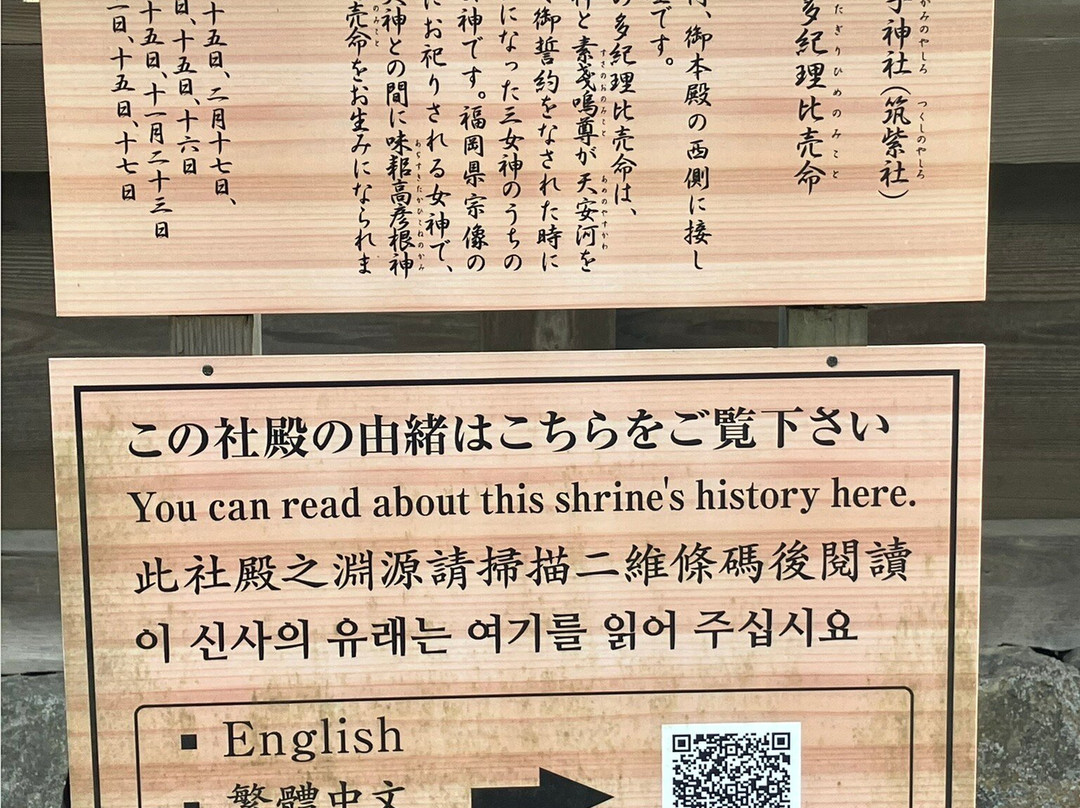 かみのやしろ つくしのやしろ
神社(筑紫社)
たぎりひめのみこと
多紀理比売命
、御本殿の西側に接し
です。
の多紀理比売命は、
すさのおのみこと あめのやすかわ
と素戔嗚尊が天安河を
御誓約をなされた時に
になった三女神のうちの
神です。福岡県宗像の
にお祀りされる女神で、
あぢすきたかひこねのかみ
神との間に味耜高彦根神
のみこと
売命をお生みになられま
十五日、二月十七日、
日、十五日、十六日
十五日、十一月二十三日
日、十五日、十七日
この社殿の由緒はこちらをご覧下さい
You can read about this shrine's history here.
此社殿之淵源請掃描二維條碼後閱讀
이 신사의 유래는 여기를 읽어 주십시요
▪ English
▪ 繁體中文